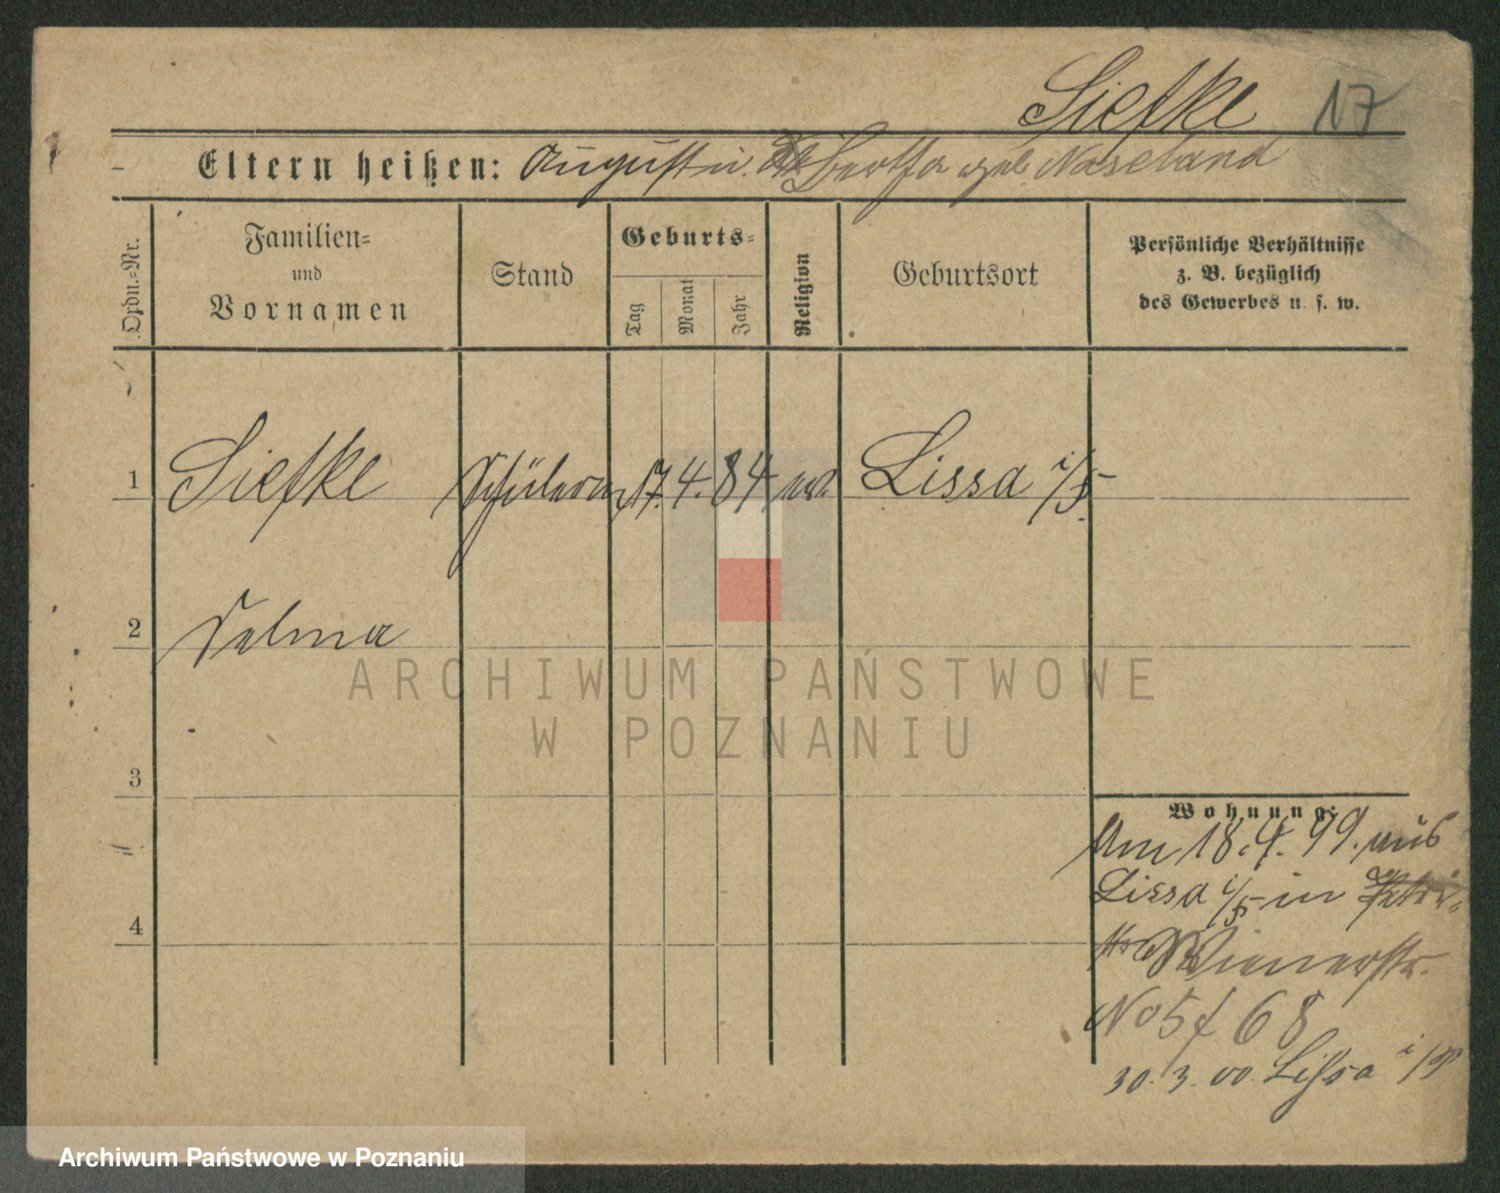 Siefke 17
Eltern heißen: August u. Bertha geb. Naseband
Ordn.-Nr.
Familien-
und
Vornamen
Stand
Geburts-
Tag
Monat
Jahr
Religion
Geburtsort
Persönliche Verhältnisse
z. B. bezüglich
des Gewerbes u. s. w.
1 Siefke Schülerin 17. 4. 84 ev. Lissa i/P.
2 Selma
3
4
Wohnung:
Am 18. 4. 99. aus
Lissa i/P in
Wienerstr.
No 5 f 68
30. 3. 00. Lissa i/P
ARCHIWUM PAŃSTWOWE
W POZNANIU
Archiwum Państwowe w Poznaniu